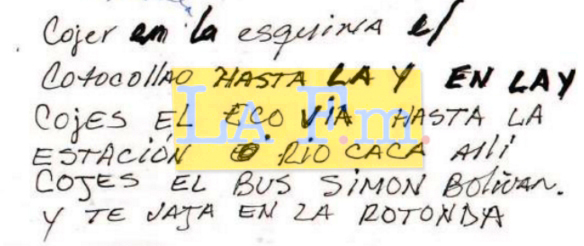 Cojer en la esquina el
Cotocollao HASTA LA Y EN LA Y
COJES EL ECO VÍA HASTA LA
LA F.m.
ESTACIÓN O RIO CACA Allí
COJES EL BUS SIMON BOLIVAR.
Y TE JAJA EN LA ROTONDA